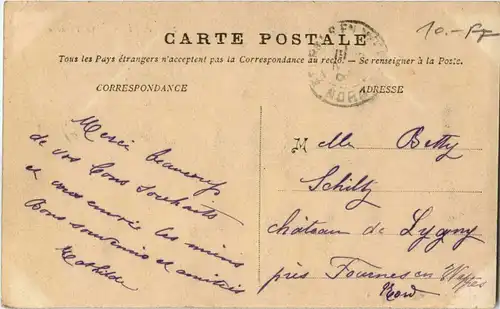 10.-
CARTE POSTALE
Tous les Pays étrangers n'acceptent pas la Correspondance au recto. — Se renseigner à la Poste.
CORRESPONDANCE
ADRESSE
NORD
Merci beaucoup
de vos bons souhaits
et vous envoie les miens
Bons souvenirs et amitiés
Mathilde
Melle Betty
Schiltz
château de Lygny
près Fournes en Weppes
Nord